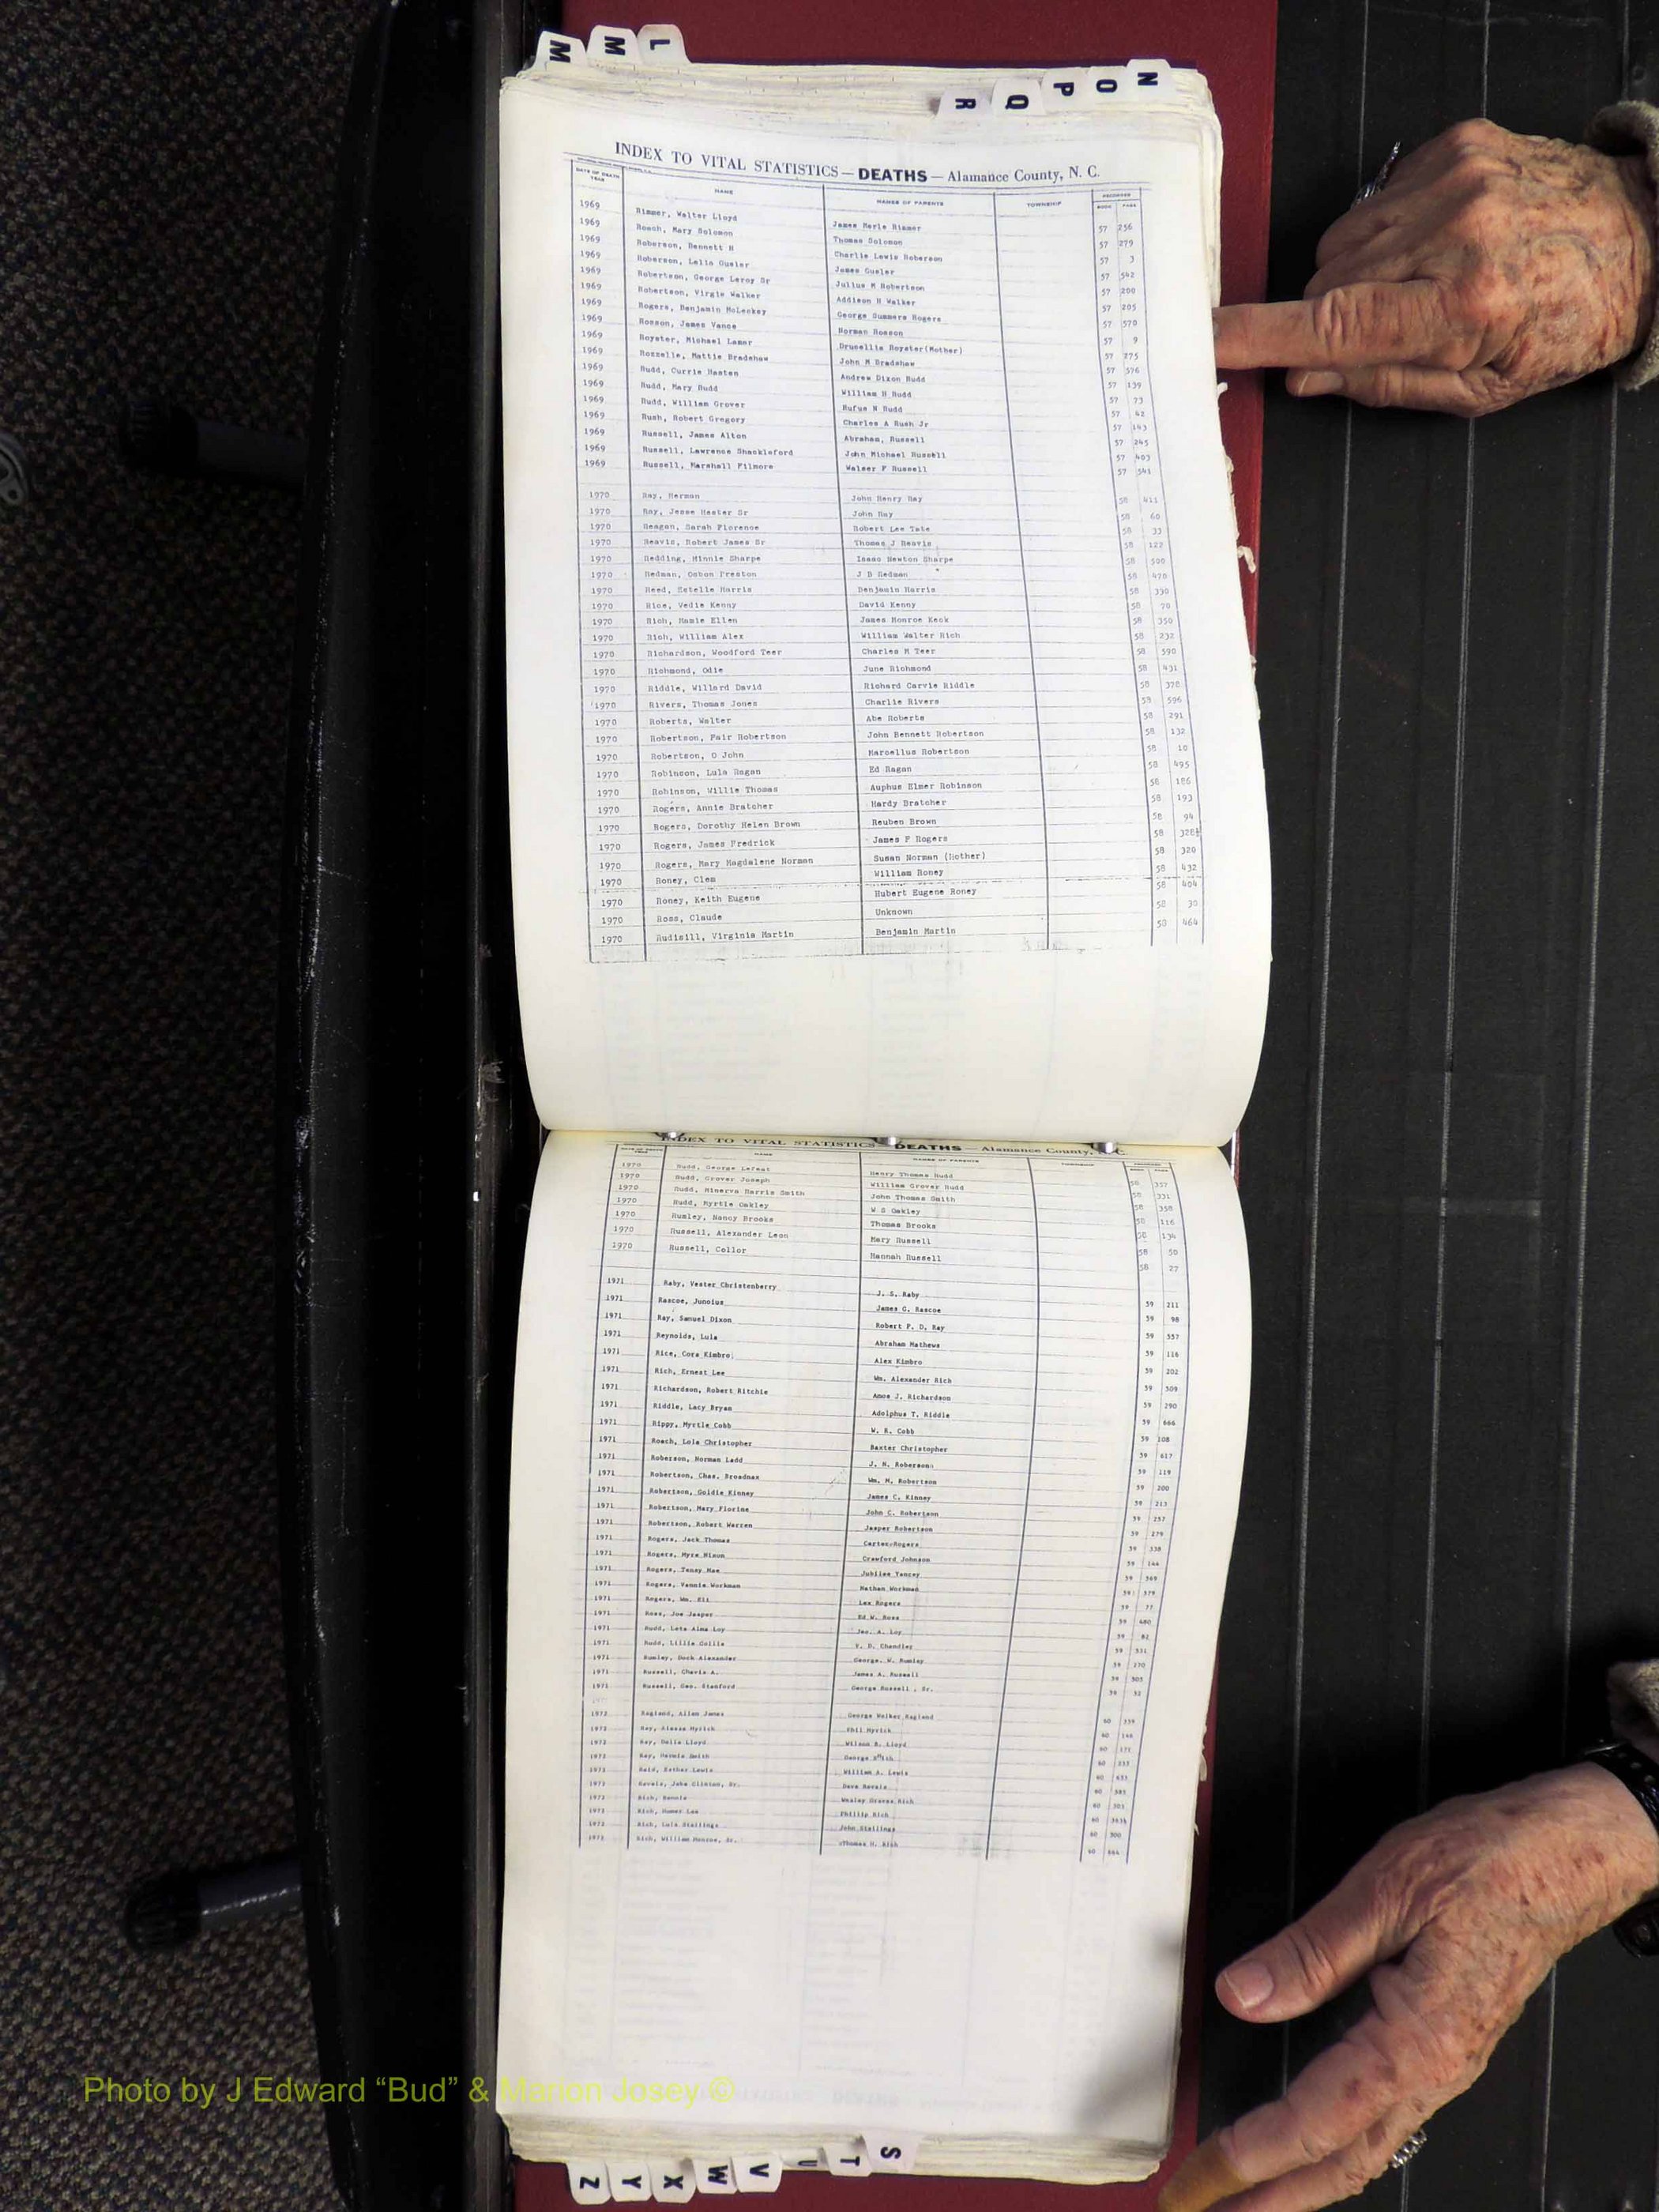 M M L
R Q P O N
INDEX TO VITAL STATISTICS — DEATHS — Alamance County, N. C.
DATE OF DEATH YEAR NAME NAMES OF PARENTS TOWNSHIP RECORDED BOOK PAGE
1969 Rimmer, Walter Lloyd James Merle Rimmer 57 256
1969 Roach, Mary Solomon Thomas Solomon 57 279
1969 Roberson, Bennett H Charlie Lewis Roberson 57 3
1969 Roberson, Lelia Gusler James Gusler 57 542
1969 Robertson, George Leroy Sr Julius M Robertson 57 200
1969 Robertson, Virgie Walker Addison H Walker 57 205
1969 Rogers, Benjamin McLenkey George Summers Rogers 57 570
1969 Rosson, James Vance Norman Rosson 57 9
1969 Royster, Michael Lamar Drucellia Royster(Mother) 57 275
1969 Rozzelle, Mattie Bradshaw John M Bradshaw 57 576
1969 Rudd, Currie Hasten Andrew Dixon Rudd 57 139
1969 Rudd, Mary Rudd William H Rudd 57 73
1969 Rudd, William Grover Rufus N Rudd 57 42
1969 Rush, Robert Gregory Charles A Rush Jr 57 143
1969 Russell, James Alton Abraham, Russell 57 245
1969 Russell, Lawrence Shackleford John Michael Russell 57 403
1969 Russell, Marshall Filmore Walser F Russell 57 541
1970 Ray, Herman John Henry Ray 58 411
1970 Ray, Jesse Hester Sr John Ray 58 60
1970 Reagan, Sarah Florence Robert Lee Tate 58 33
1970 Reavis, Robert James Sr Thomas J Reavis 58 122
1970 Redding, Minnie Sharpe Isaac Newton Sharpe 58 500
1970 Redman, Osbon Preston J B Redman 58 478
1970 Reed, Estelle Harris Benjamin Harris 58 330
1970 Rice, Vedie Kenny David Kenny 58 70
1970 Rich, Mamie Ellen James Monroe Keck 58 350
1970 Rich, William Alex William Walter Rich 58 232
1970 Richardson, Woodford Teer Charles M Teer 58 590
1970 Richmond, Odie June Richmond 58 431
1970 Riddle, Willard David Richard Carvie Riddle 58 378
1970 Rivers, Thomas Jones Charlie Rivers 58 596
1970 Roberts, Walter Abe Roberts 58 291
1970 Robertson, Fair Robertson John Bennett Robertson 58 132
1970 Robertson, O John Marcellus Robertson 58 10
1970 Robinson, Lula Ragan Ed Ragan 58 495
1970 Robinson, Willie Thomas Auphus Elmer Robinson 58 186
1970 Rogers, Annie Bratcher Hardy Bratcher 58 193
1970 Rogers, Dorothy Helen Brown Reuben Brown 58 94
1970 Rogers, James Fredrick James F Rogers 58 328½
1970 Rogers, Mary Magdalene Norman Susan Norman (Mother) 58 320
1970 Roney, Clem William Roney 58 432
1970 Roney, Keith Eugene Hubert Eugene Roney 58 404
1970 Ross, Claude Unknown 58 30
1970 Rudisill, Virginia Martin Benjamin Martin 58 464
INDEX TO VITAL STATISTICS — DEATHS — Alamance County, N. C.
NAME NAMES OF PARENTS TOWNSHIP
1970 Rudd, George LeFeat Henry Thomas Rudd 58 357
1970 Rudd, Grover Joseph William Grover Rudd 58 331
1970 Rudd, Minerva Harris Smith John Thomas Smith 58 358
1970 Rudd, Myrtle Oakley W S Oakley 58 116
1970 Rumley, Nancy Brooks Thomas Brooks 58 134
1970 Russell, Alexander Leon Mary Russell 58 50
1970 Russell, Collor Hannah Russell 58 27
1971 Raby, Vester Christenberry J. S. Raby 59 211
1971 Rascoe, Junoius James G. Rascoe 59 98
1971 Ray, Samuel Dixon Robert P. D. Ray 59 557
1971 Reynolds, Lula Abraham Mathews 59 116
1971 Rice, Cora Kimbro Alex Kimbro 59 202
1971 Rich, Ernest Lee Wm. Alexander Rich 59 509
1971 Richardson, Robert Ritchie Amos J. Richardson 59 290
1971 Riddle, Lacy Bryan Adolphus T. Riddle 59 666
1971 Rippy, Myrtle Cobb W. R. Cobb 59 108
1971 Roach, Lola Christopher Baxter Christopher 59 617
1971 Roberson, Norman Ladd J. N. Roberson 59 119
1971 Robertson, Chas. Broadnax Wm. M. Robertson 59 200
1971 Robertson, Goldie Kinney James C. Kinney 59 213
1971 Robertson, Mary Florine John C. Robertson 59 257
1971 Robertson, Robert Warren Jasper Robertson 59 279
1971 Rogers, Jack Thomas Carter Rogers 59 338
1971 Rogers, Myra Nixon Crawford Johnson 59 144
1971 Rogers, Taney Mae Jubilee Yancey 59 569
1971 Rogers, Vannie Workman Nathan Workman 59 579
1971 Rogers, Wm. Eli Lex Rogers 59 77
1971 Ross, Joe Jasper Ed W. Ross 59 480
1971 Rudd, Leta Alma Loy Jno. A. Loy 59 82
1971 Rudd, Lillie Gillie V. D. Chandley 59 531
1971 Rumley, Dock Alexander George. W. Rumley 59 270
1971 Russell, Chavis A. James A. Russell 59 505
1971 Russell, Geo. Stanford George Russell, Sr. 59 32
1972 Ragland, Allen James George Walker Ragland 60 339
1972 Ray, Myrick Phil Myrick 60 146
1972 Ray, Delia Lloyd Wilson B. Lloyd 60 171
1972 Ray, Smith George Smith 60 233
1972 Reid, Esther Lewis William A. Lewis 60 633
1972 Revels, John Clinton, Sr. Dave Revels 60 585
1972 Rich, Bennie Wesley Graves Rich 60 503
1972 Rich, Homer Lee Phillip Rich 60
1972 Rich, Lula Stallings John Stallings 60 300
1972 Rich, William Monroe, Sr. Thomas H. Rich 60 664
Photo by J Edward “Bud” & Marion Josey ©
Z Y X W V U T S